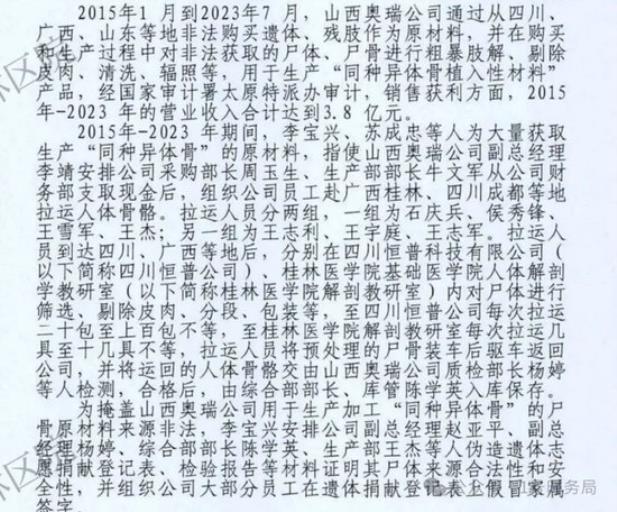 2015年1 月到2023年7 月，山西奥瑞公司通过从四川、
广西、山东等地非法购买遗体、残肢作为原材料，并在购买
和生产过程中对非法获取的尸体、尸骨进行粗暴肢解、剔除
皮肉、清洗、辐照等，用于生产“同种异体骨植入性材料”
产品，经国家审计署太原特派办审计，销售获利方面，2015
年-2023 年的营业收入合计达到3.8 亿元。
2015年-2023 年期间，李宝兴、苏成忠等人为大量获取
生产“同种异体骨”的原材料，指使山西奥瑞公司副总经理
李靖安排公司采购部长周玉生、生产部部长牛文军从公司财
务部支取现金后，组织公司员工赴广西桂林、四川成都等地
拉运人体骨骼。拉运人员分两组，一组为石庆兵、侯秀锋、
王雪军、王杰；另一组为王志利、王宇庭、王志军。拉运人
员到达四川、广西等地后，分别在四川恒普科技有限公司（
以下简称四川恒普公司）、桂林医学院基础医学院人体解剖
学教研室（以下简称桂林医学院解剖教研室）内对尸体进行
筛选、剔除皮肉、分段、包装等，至四川恒普公司每次拉运
二十包至上百包不等，至桂林医学院解剖教研室每次拉运几
具至十几具不等，拉运人员将预处理的尸骨装车后驱车返回
公司，并将运回的人体骨骼交由山西奥瑞公司质检部长杨婷
等人检测，合格后，由综合部部长、库管陈学英入库保存。
为掩盖山西奥瑞公司用于生产加工“同种异体骨”的尸
骨原材料来源非法，李宝兴安排公司副总经理赵亚平、副总
经理杨婷、综合部部长陈学英、生产部王杰等人伪造遗体志
愿捐献登记表、检验报告等材料证明其尸体来源合法性和安
全性，并组织公司大部分员工在遗体捐献登记表上假冒家属
签字。
林区
务局